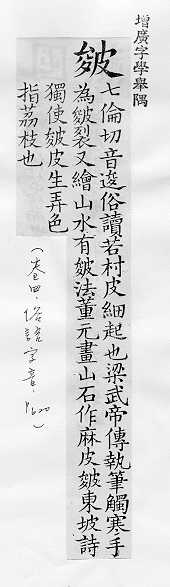 增廣字學舉隅
皴
七倫切音逡俗讀若村皮細起也梁武帝傳執筆觸寒手
為皴裂又繪山水有皴法董元畫山石作麻皮皴東坡詩
獨使皴皮生弄色
指荔枝也
(卷四．俗語字音．P600)